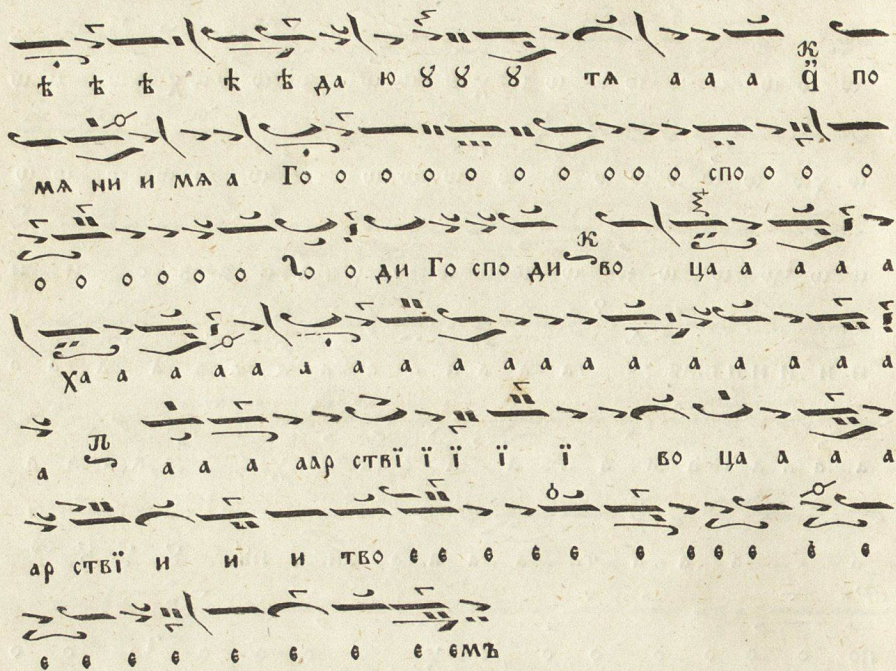 ѣ ѣ ѣ ѣ ѣ да ю ꙋ ꙋ ꙋ тѧ а а а по
мѧ ни и мѧ а Го о о о о о о о о о спо о о о
о о о о о о Го о ди Го спо ди во ца а а а а
ха а а а а а а а а а а а а а а а а а
а а а а аар ствї ї ї ї ї во ца а а а
ар ствї и и и тво е е е е е е е е е е е
е е е е е е е е емъ